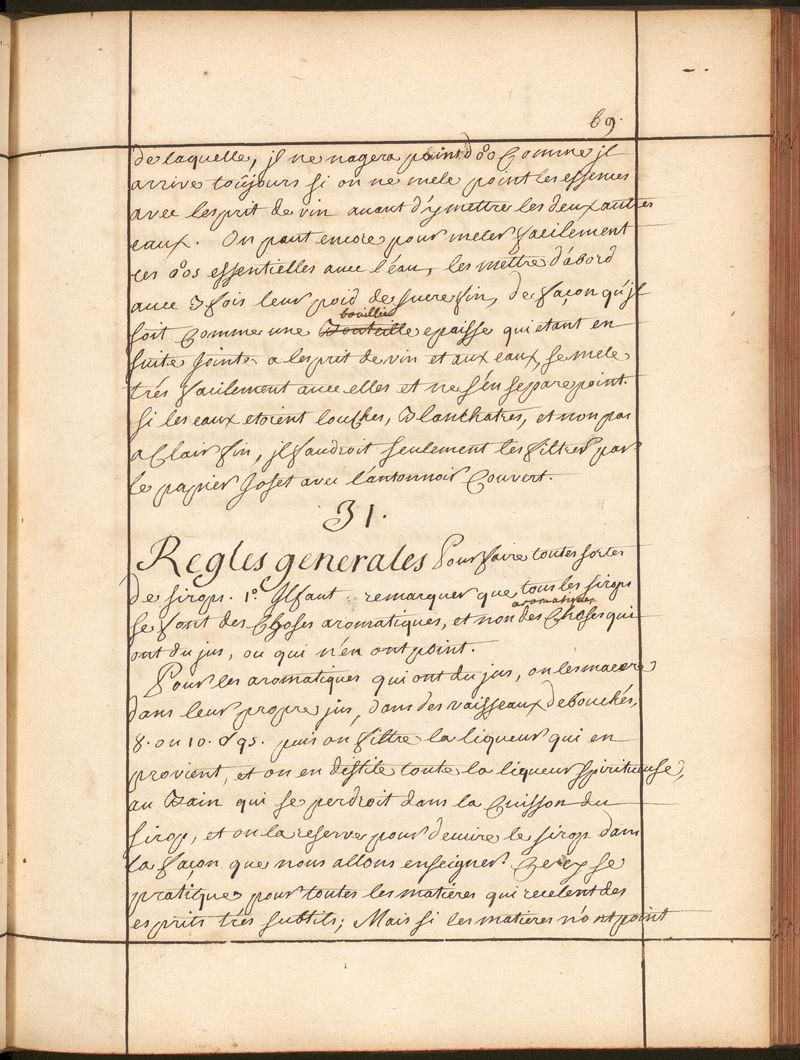 69.
de laquelle, jl ne nagera point d'°o Comme jl
arrive toûjours si on ne mele point les essences
avec lesprit de vin auant d'y mettre les deux autres
eaux. On peut encore pour meler facilement
ces °°s essentielles auec l'éau, les mettre d'abord
auec 3 fois leur poid de sucre fin, de façon qu'jl
bouillie
soit Comme une Bouteille epaisse qui etant en
suite Jointe a lesprit de vin et aux eaux, se mele
trés facilement auec elles et ne s'én separe point.
si les eaux etoient louches, Blanchatres, et non pas
a Clair fin, jl faudroit seulement les filtrer par
le papier Joset avec l'antonnoir Couvert.
31.
Regles generales Pour faire toutes sortes
de sirops. 1°. Jl faut remarquer que tous les sirops
aromatiques
se font des Choses aromatiques, et non des Choses qui
ont du jus, ou qui n'en ont point.
Pour les aromatiques qui ont du jus, on les macere
dans leur propre jus, dans des vaisseaux debouchés,
8. ou 10. puis on filtre la liqueur qui en
provient, et on en distile toute la liqueur spiritueuse,
au Bain qui se perdroit dans la Cuisson du
sirop, et on la reserve pour decuire le sirop dans
la façon que nous allons enseigner. Cecy se
pratique pour toutes les matiéres qui recelent des
esprits trés subtils; Mais si les matieres n'ont point